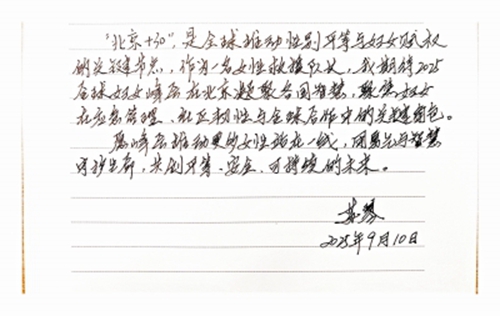 "北京+30", 是全球推动性别平等与妇女赋权
的关键节点，作为一名女性救援队长，我期待2025
全球妇女峰会在北京凝聚各国智慧，聚焦妇女
在应急管理、社区韧性与全球合作中的关键角色。
愿峰会推动更多女性站在一线，用勇气与智慧
守护生命，共创平等、安全、可持续的未来。
2025年9月10日